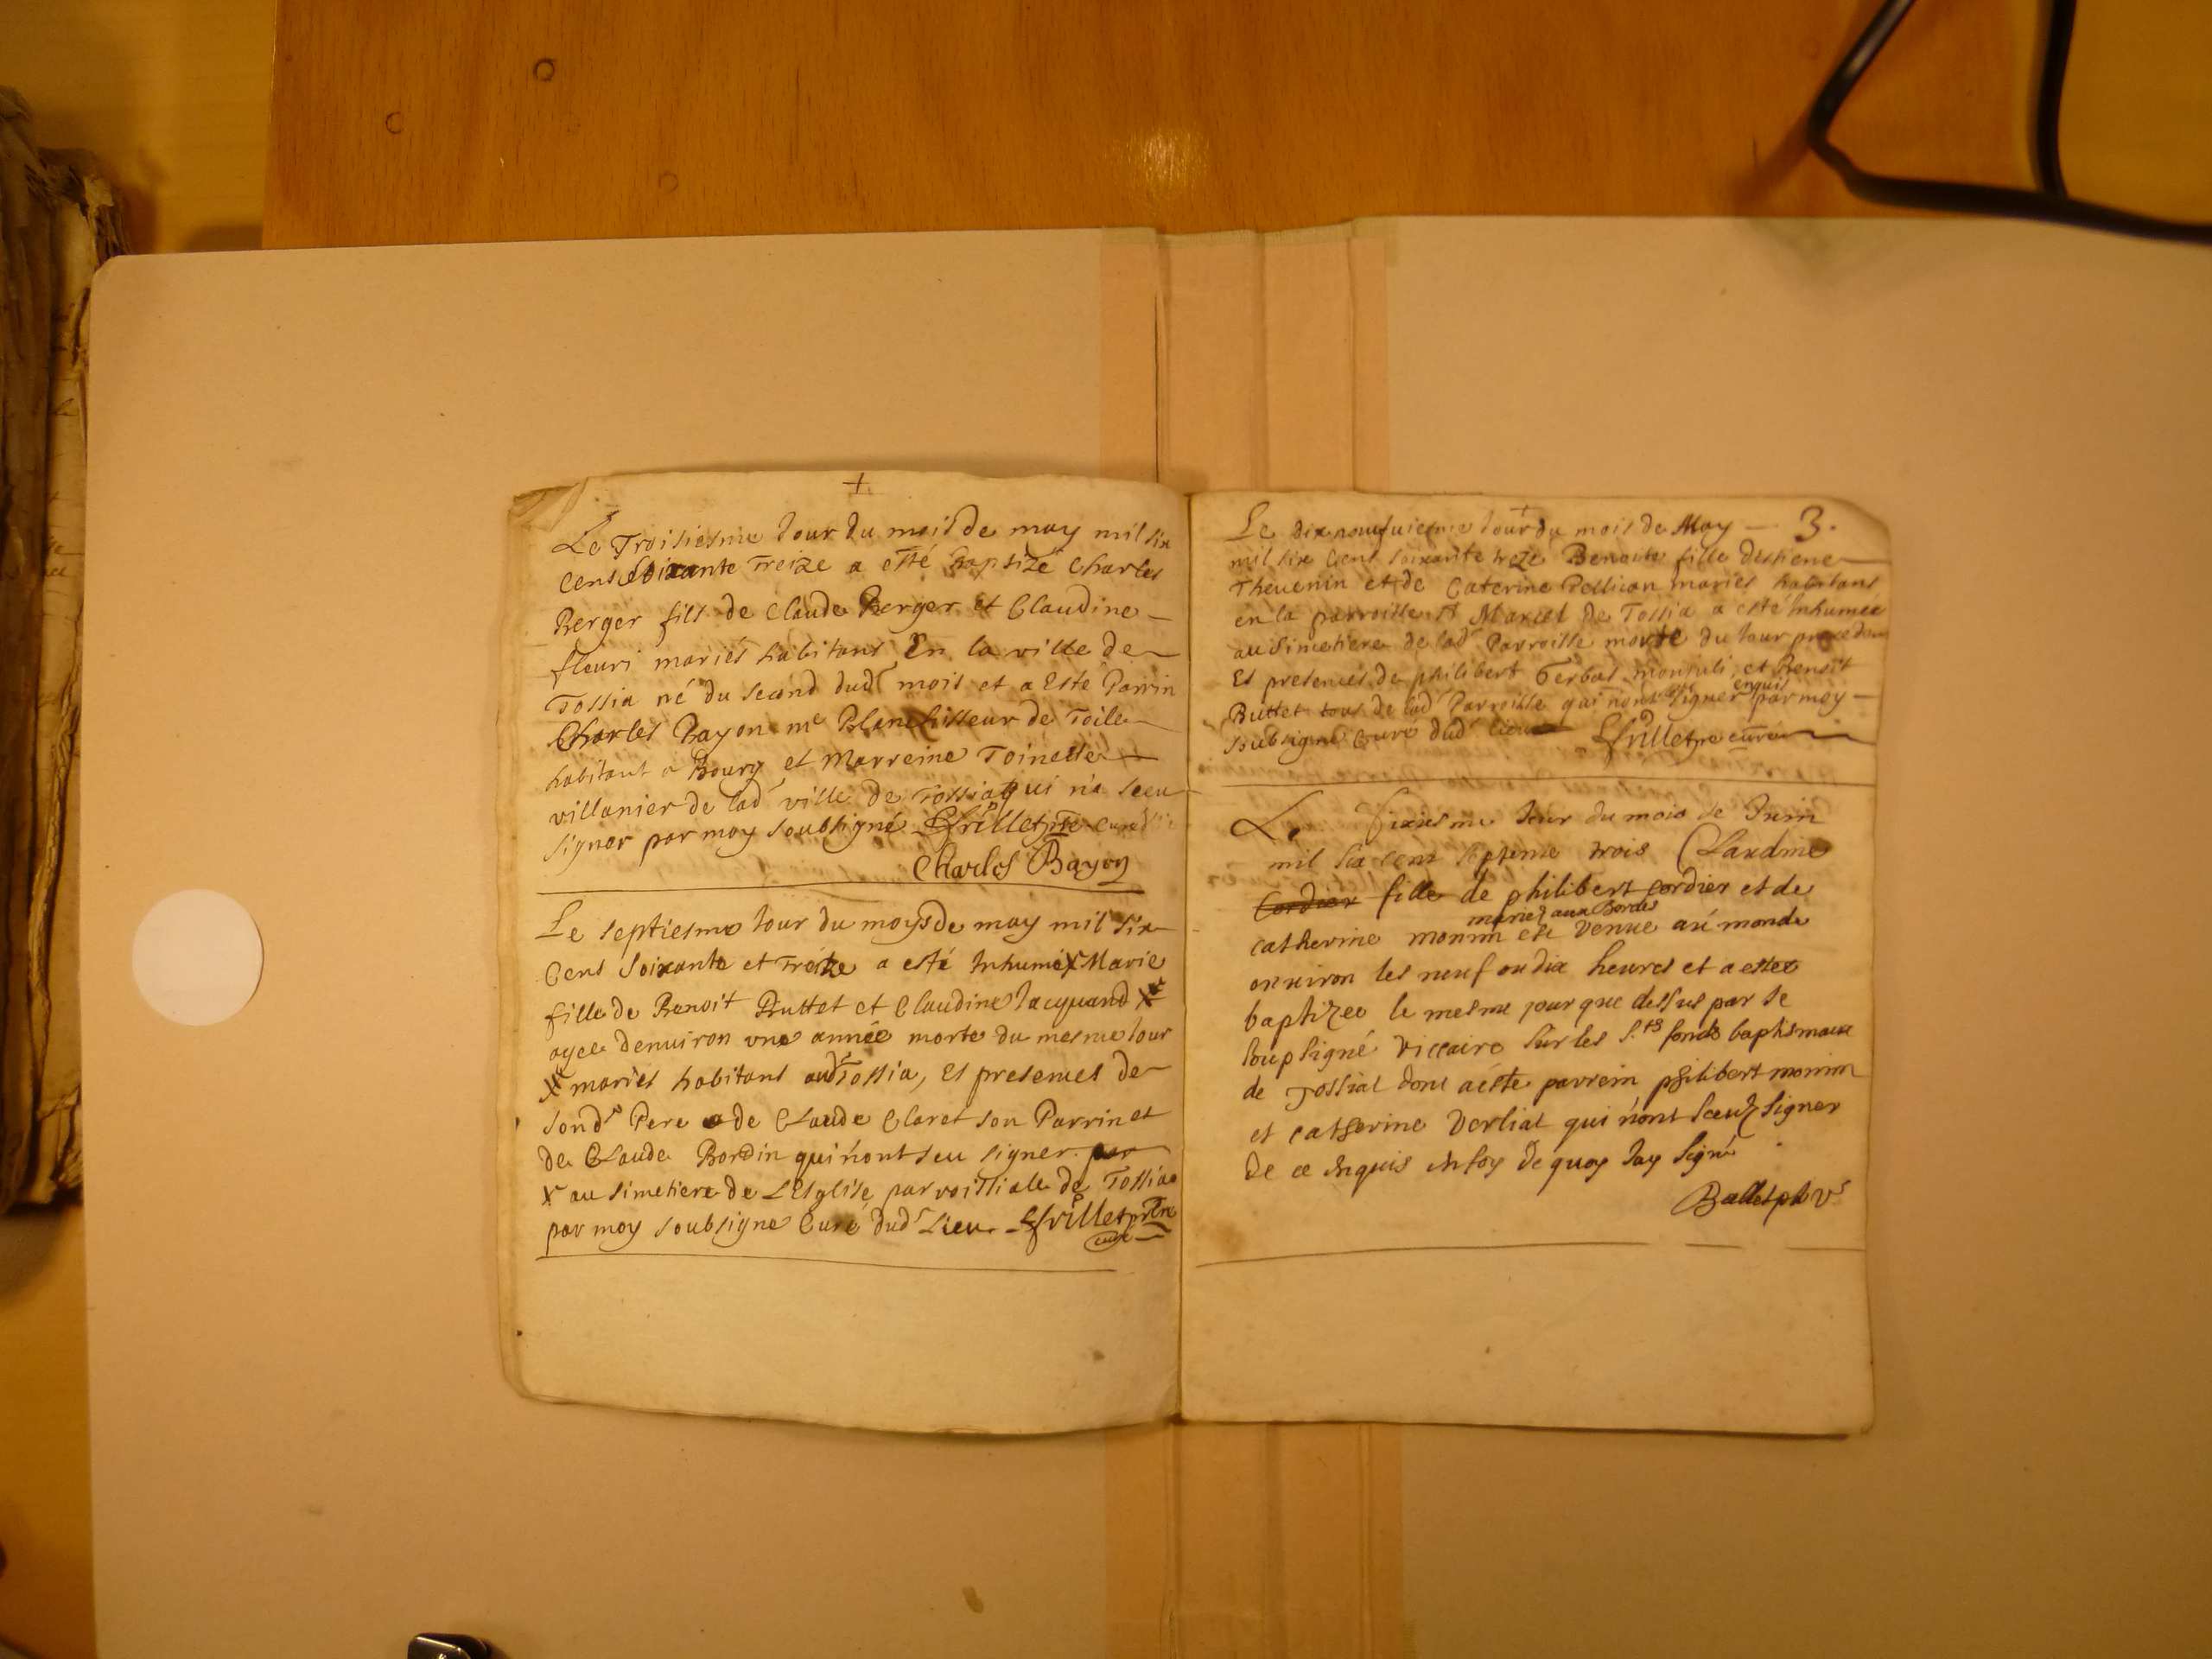 +
Le Troisiesme Jour du mois de may mil six
Cens soixante Treize a esté Baptizé Charles
Berger fils de Claude Berger et Claudine
fleuri mariés habitans En la ville de
Tossia né du second dud mois et a Esté Parrin
Charles Bayon me Blanchisseur de Toile
habitant a Bourg et Marreine Toinette
villanier de lad ville de Tossia qui na sceu
signer par moy soubsigné Frillet pre curé
Charles Bayon
Le septiesme Jour du moys de may mil six
Cens Soixante et Treize a esté Inhumé X Marie
fille de Benoit Buttet et Claudine Jacquand X
agee denuiron une année morte du mesme Jour
X mariés habitans aud Tossia, Es presences de
sond Pere de Claude Claret son Parrin et
de Claude Bordin qui n'ont seu signer par
X au simetiere de L'Esglise parroissiale de Tossia
par moy soubsigne Curé dud Lieu. Frillet pre
curé
Le dix neufuiesme Jour du mois de May — 3.
mil six Cens soixante treze Benoite fille destiene
Thevenin et de Caterine Pellican mariés habitans
en la parroisse St Marcel de Tossia a esté Inhumée
au Simetiere de lad Parroisse morte du Jour precedan
Es presences de philibert et Benoist
Buttet tous de lad Parroisse qui nont sceu signer enquis par moy
soubsigné Curé dud lieu Frillet pre curé
Le sixiesme Jour du mois de Juin
mil six cens septente trois Claudine
Cordier fille de philibert cordier et de
mariez aux Bordes
catherine monin est venue au monde
enuiron les neuf ou dix heures et a estee
baptizee le mesme jour que dessus par le
soupsigné viccaire sur les S.ts fonds baptismaux
de Tossiat dont a esté parrein philibert monin
et catherine Verliat qui n'ont sceuz signer
de ce enquis en foy de quoy Jay signé
Ballet pb vr